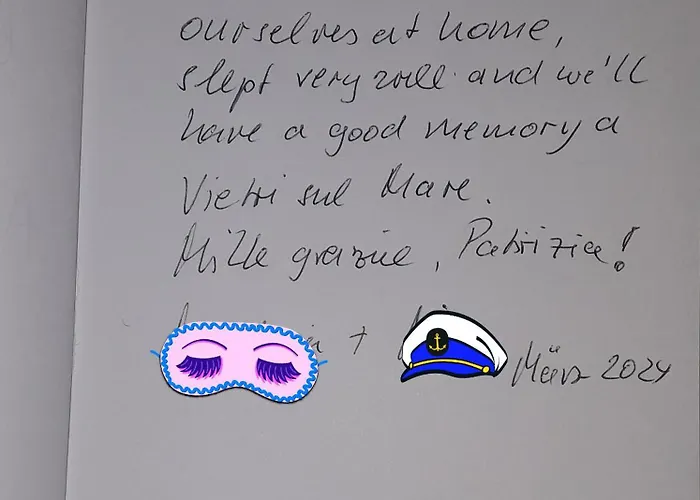 ourselves at home,
slept very well and we'll
have a good memory a
Vietri sul Mare.
Mille grazie, Patrizia!
+ März 2024